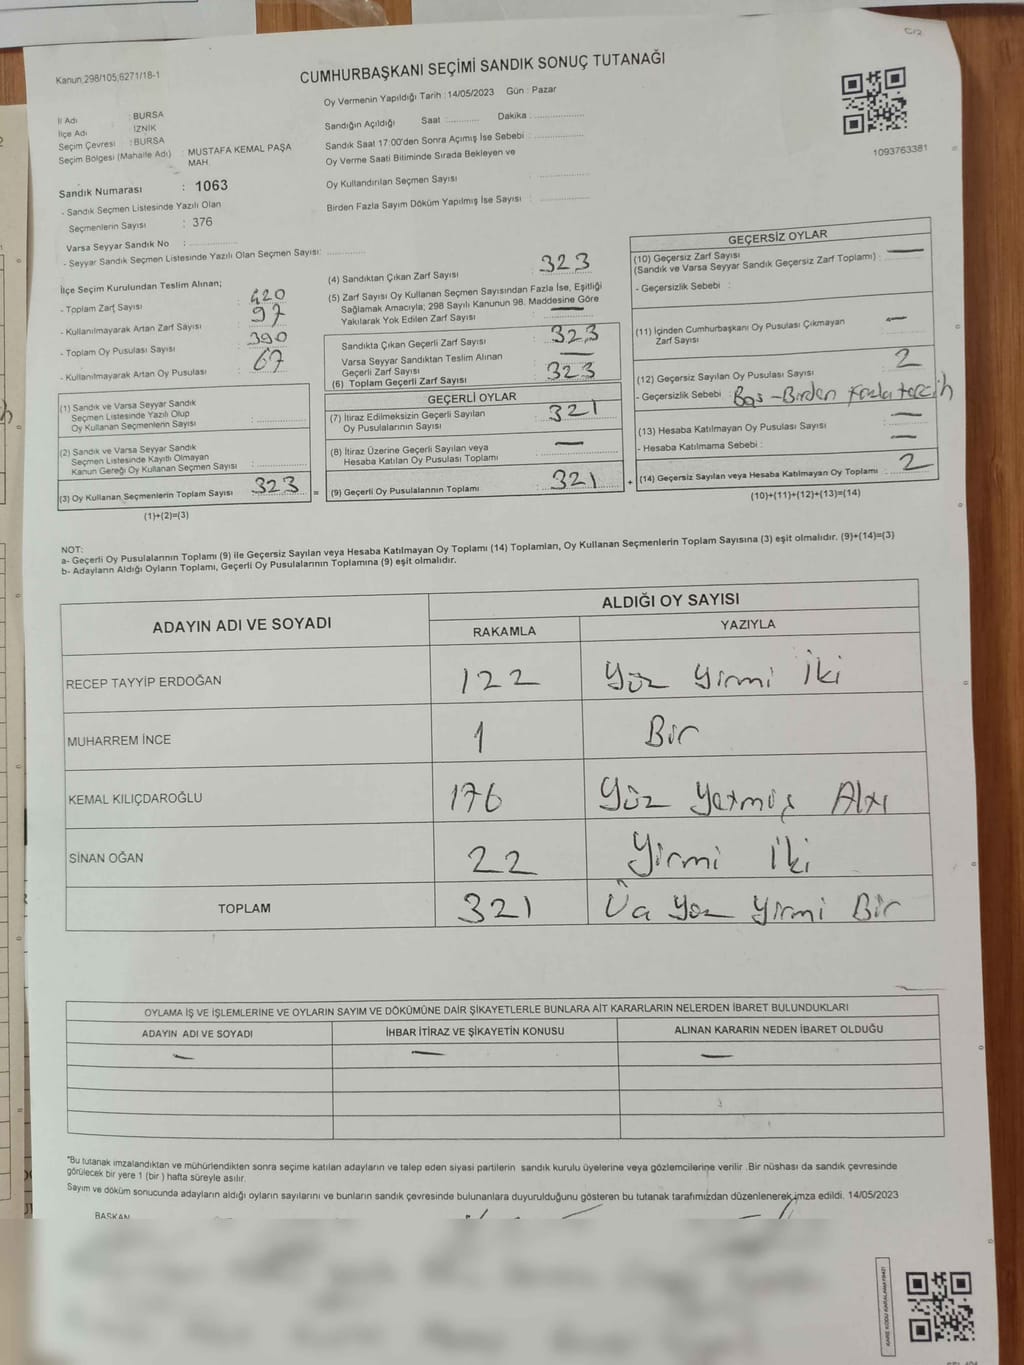 C/2
Kanun,298/105,6271/18-1
CUMHURBAŞKANI SEÇİMİ SANDIK SONUÇ TUTANAĞI
Oy Vermenin Yapıldığı Tarih : 14/05/2023 Gün : Pazar
İl Adı : BURSA
İlçe Adı : İZNİK
Seçim Çevresi : BURSA
Seçim Bölgesi (Mahalle Adı) : MUSTAFA KEMAL PAŞA
MAH.
Sandığın Açıldığı Saat Dakika
Sandık Saat 17:00'den Sonra Açımış İse Sebebi :
Oy Verme Saati Bitiminde Sırada Bekleyen ve
Oy Kullandırılan Seçmen Sayısı
Birden Fazla Sayım Döküm Yapılmış İse Sayısı :
1093763381
Sandık Numarası : 1063
- Sandık Seçmen Listesinde Yazılı Olan
Seçmenlerin Sayısı : 376
Varsa Seyyar Sandık No :
- Seyyar Sandık Seçmen Listesinde Yazılı Olan Seçmen Sayısı:
İlçe Seçim Kurulundan Teslim Alınan;
- Toplam Zarf Sayısı : 420
- Kullanılmayarak Artan Zarf Sayısı : 97
- Toplam Oy Pusulası Sayısı : 390
- Kullanılmayarak Artan Oy Pusulası : 67
(1) Sandık ve Varsa Seyyar Sandık
Seçmen Listesinde Yazılı Olup
Oy Kullanan Seçmenlerin Sayısı :
(2) Sandık ve Varsa Seyyar Sandık
Seçmen Listesinde Kayıtlı Olmayan
Kanun Gereği Oy Kullanan Seçmen Sayısı :
(3) Oy Kullanan Seçmenlerin Toplam Sayısı : 323 =
(1)+(2)=(3)
(4) Sandıktan Çıkan Zarf Sayısı : 323
(5) Zarf Sayısı Oy Kullanan Seçmen Sayısından Fazla İse, Eşitliği
Sağlamak Amacıyla; 298 Sayılı Kanunun 98. Maddesine Göre
Yakılarak Yok Edilen Zarf Sayısı : —
Sandıkta Çıkan Geçerli Zarf Sayısı : 323
Varsa Seyyar Sandıktan Teslim Alınan
Geçerli Zarf Sayısı : —
(6) Toplam Geçerli Zarf Sayısı : 323
GEÇERLİ OYLAR
(7) İtiraz Edilmeksizin Geçerli Sayılan
Oy Pusulalarının Sayısı : 321
(8) İtiraz Üzerine Geçerli Sayılan veya
Hesaba Katılan Oy Pusulası Toplamı : —
(9) Geçerli Oy Pusulalarının Toplamı : 321 +
GEÇERSİZ OYLAR
(10) Geçersiz Zarf Sayısı
(Sandık ve Varsa Seyyar Sandık Geçersiz Zarf Toplamı) : —
- Geçersizlik Sebebi :
(11) İçinden Cumhurbaşkanı Oy Pusulası Çıkmayan
Zarf Sayısı : —
(12) Geçersiz Sayılan Oy Pusulası Sayısı : 2
- Geçersizlik Sebebi : Boş - Birden fazla tercih
(13) Hesaba Katılmayan Oy Pusulası Sayısı : —
- Hesaba Katılmama Sebebi : —
(14) Geçersiz Sayılan veya Hesaba Katılmayan Oy Toplamı : 2
(10)+(11)+(12)+(13)=(14)
NOT:
a- Geçerli Oy Pusulalarının Toplamı (9) ile Geçersiz Sayılan veya Hesaba Katılmayan Oy Toplamı (14) Toplamları, Oy Kullanan Seçmenlerin Toplam Sayısına (3) eşit olmalıdır. (9)+(14)=(3)
b- Adayların Aldığı Oyların Toplamı, Geçerli Oy Pusulalarının Toplamına (9) eşit olmalıdır.
ADAYIN ADI VE SOYADI ALDIĞI OY SAYISI
RAKAMLA YAZIYLA
RECEP TAYYİP ERDOĞAN 122 Yüz Yirmi İki
MUHARREM İNCE 1 Bir
KEMAL KILIÇDAROĞLU 176 Yüz Yetmiş Altı
SİNAN OĞAN 22 Yirmi İki
TOPLAM 321 Üç Yüz Yirmi Bir
OYLAMA İŞ VE İŞLEMLERİNE VE OYLARIN SAYIM VE DÖKÜMÜNE DAİR ŞİKAYETLERLE BUNLARA AİT KARARLARIN NELERDEN İBARET BULUNDUKLARI
ADAYIN ADI VE SOYADI İHBAR İTİRAZ VE ŞİKAYETİN KONUSU ALINAN KARARIN NEDEN İBARET OLDUĞU
— — —
*Bu tutanak imzalandıktan ve mühürlendikten sonra seçime katılan adayların ve talep eden siyasi partilerin sandık kurulu üyelerine veya gözlemcilerine verilir .Bir nüshası da sandık çevresinde
görülecek bir yere 1 (bir ) hafta süreyle asılır.
Sayım ve döküm sonucunda adayların aldığı oyların sayılarını ve bunların sandık çevresinde bulunanlara duyurulduğunu gösteren bu tutanak tarafımızdan düzenlenerek imza edildi. 14/05/2023
BAŞKAN